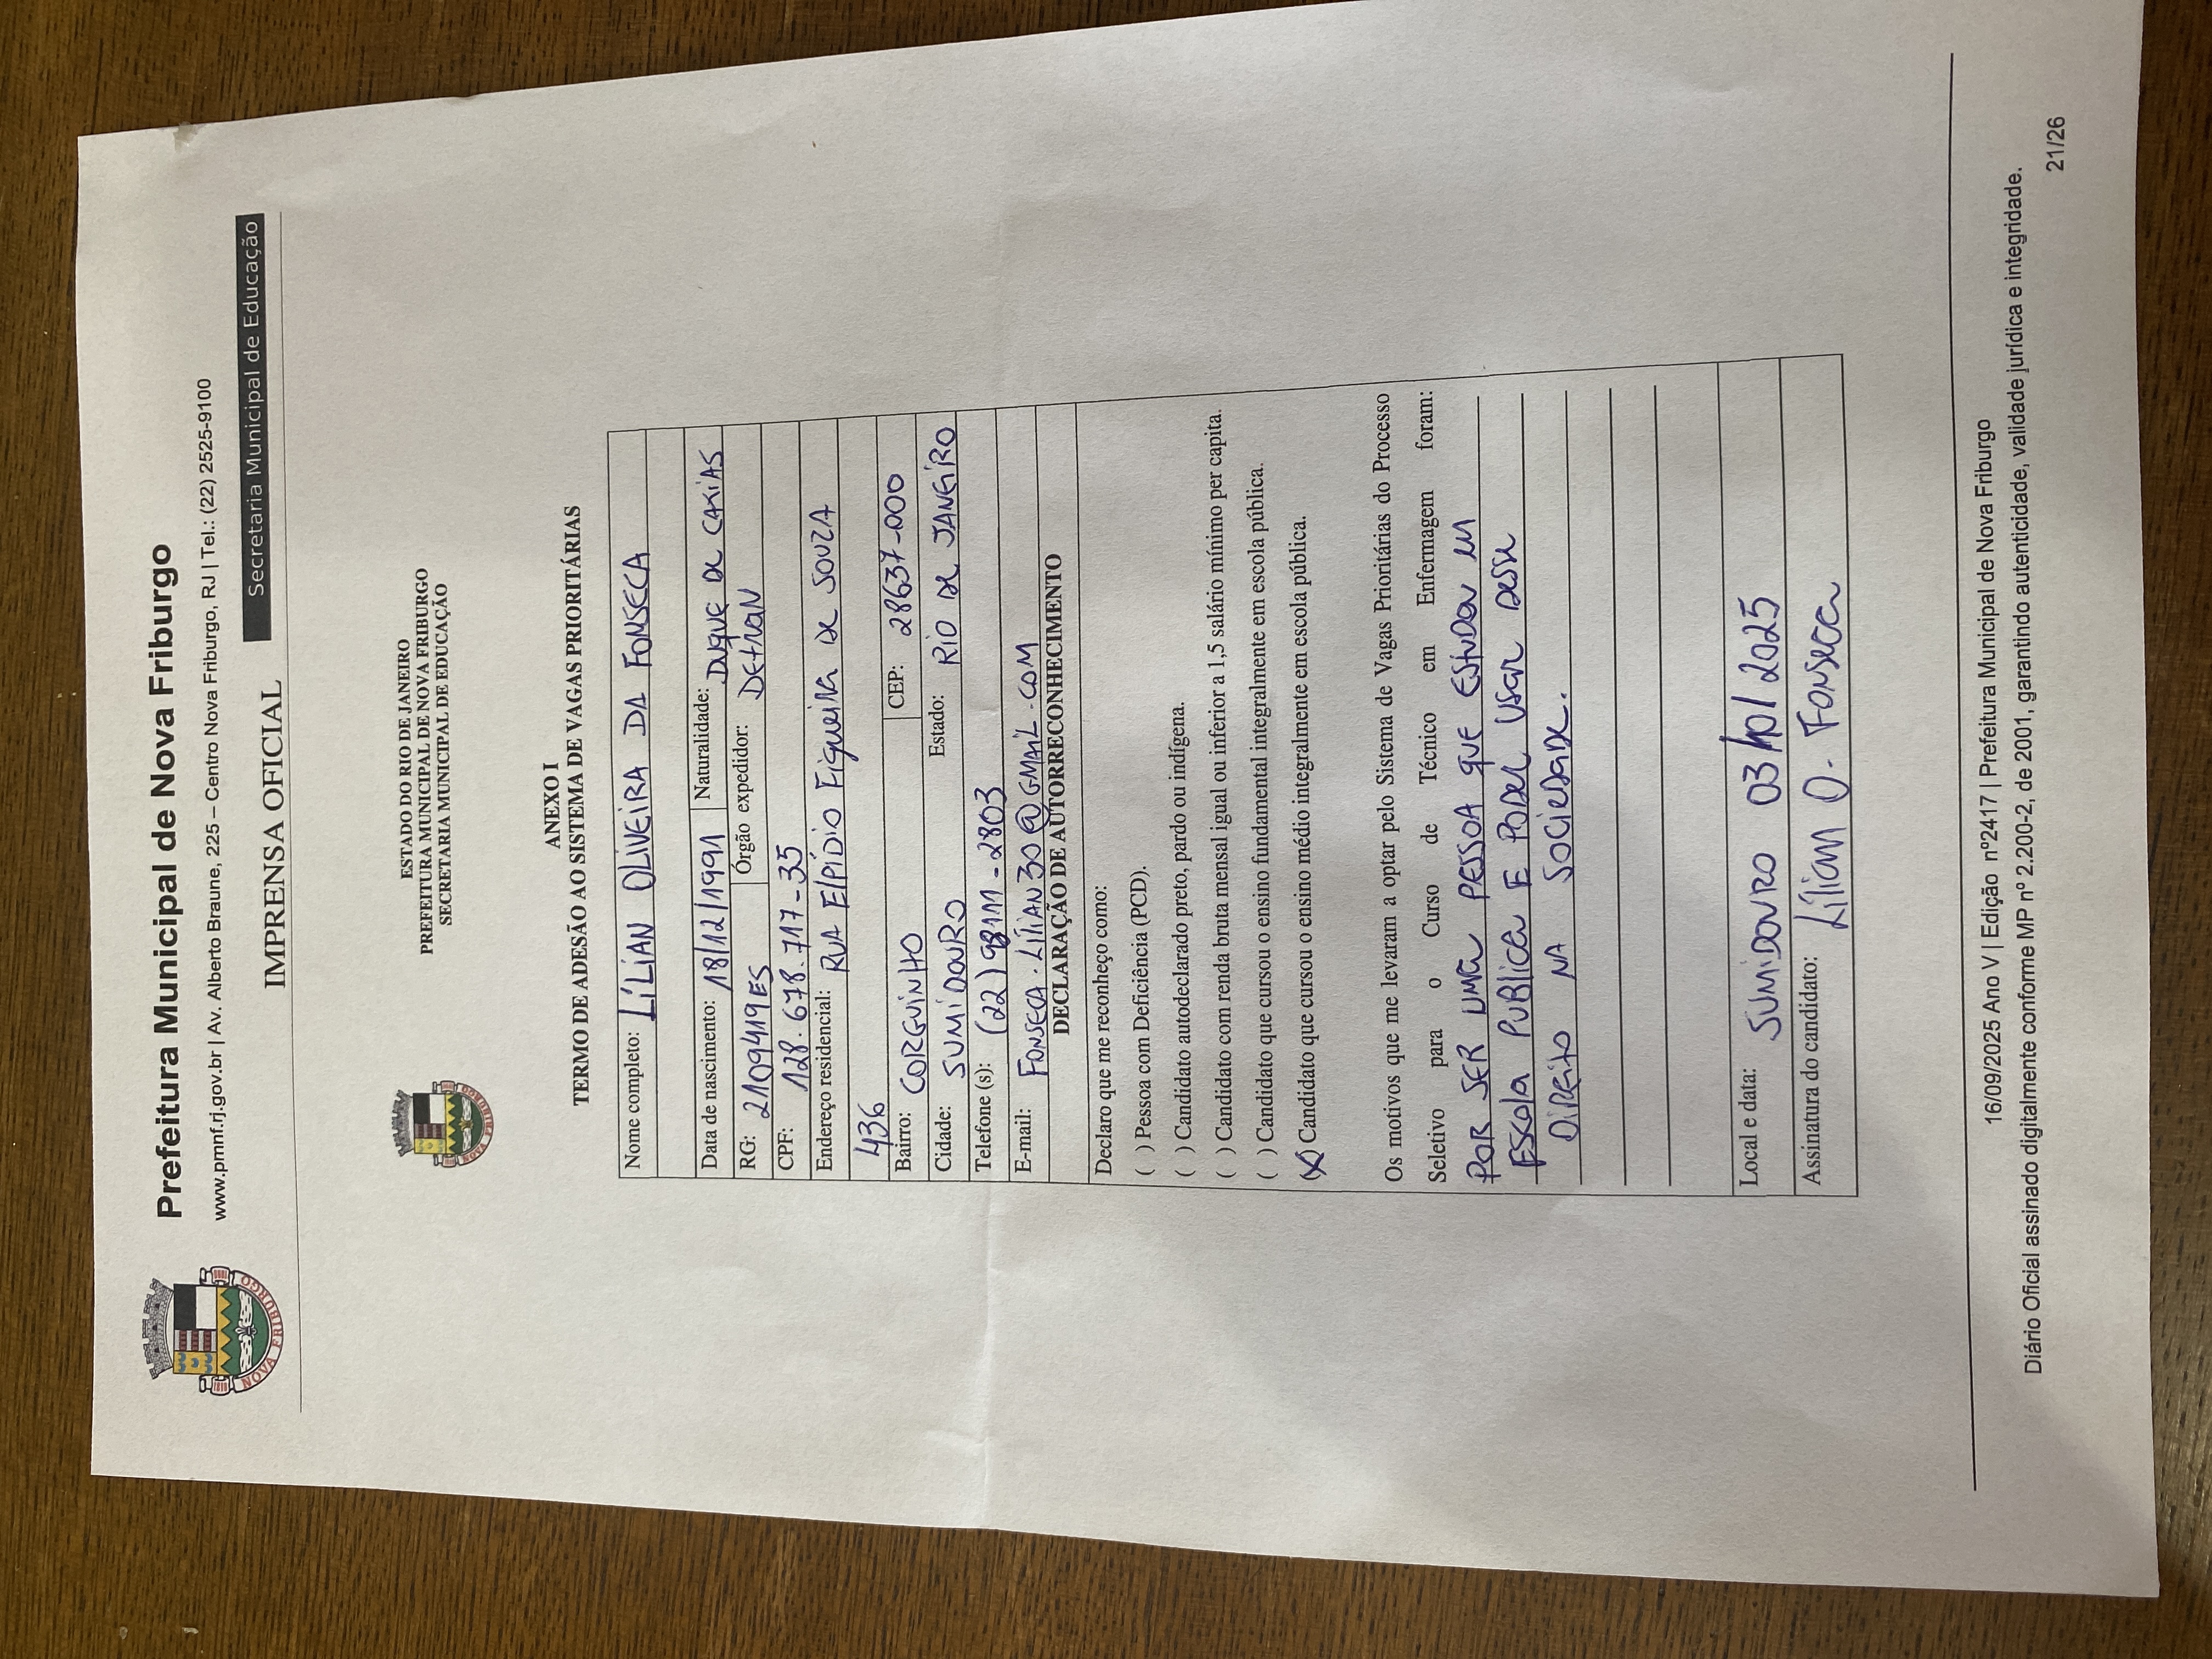 Prefeitura Municipal de Nova Friburgo
www.pmnf.rj.gov.br | Av. Alberto Braune, 225 – Centro Nova Friburgo, RJ | Tel.: (22) 2525-9100
Secretaria Municipal de Educação
IMPRENSA OFICIAL
NOVA FRIBURGO
ESTADO DO RIO DE JANEIRO
PREFEITURA MUNICIPAL DE NOVA FRIBURGO
SECRETARIA MUNICIPAL DE EDUCAÇÃO
NOVA FRIBURGO
ANEXO I
TERMO DE ADESÃO AO SISTEMA DE VAGAS PRIORITÁRIAS
Nome completo: LÍLIAN OLIVEIRA DA FONSECA
Data de nascimento: 18/12/1991 Naturalidade: DUQUE DE CAXIAS
RG: 2109419ES Órgão expedidor: DEtRaN
CPF: 128.678.717-35
Endereço residencial: RUA ElPÍDIO FigueiRa DE SOUZA
436
Bairro: CORGUINHO CEP: 28637-000
Cidade: SUMIDOURO Estado: RIO DE JANEIRO
Telefone (s): (22) 98111-2803
E-mail: FONSECA.LILIAN30@GMAIL.COM
DECLARAÇÃO DE AUTORRECONHECIMENTO
Declaro que me reconheço como:
( ) Pessoa com Deficiência (PCD).
( ) Candidato autodeclarado preto, pardo ou indígena.
( ) Candidato com renda bruta mensal igual ou inferior a 1,5 salário mínimo per capita.
( ) Candidato que cursou o ensino fundamental integralmente em escola pública.
(X) Candidato que cursou o ensino médio integralmente em escola pública.
Os motivos que me levaram a optar pelo Sistema de Vagas Prioritárias do Processo
Seletivo para o Curso de Técnico em Enfermagem foram:
POR SER UMa PESSOA QUE EStUDOU em
ESCola PUBlICa E PODER USaR DESSE
DIREIto NA SOCIEDaDE.
Local e data: SUMIDOURO 03/10/2025
Assinatura do candidato: Lílian O. Fonseca
16/09/2025 Ano V | Edição nº2417 | Prefeitura Municipal de Nova Friburgo
Diário Oficial assinado digitalmente conforme MP nº 2.200-2, de 2001, garantindo autenticidade, validade jurídica e integridade.
21/26